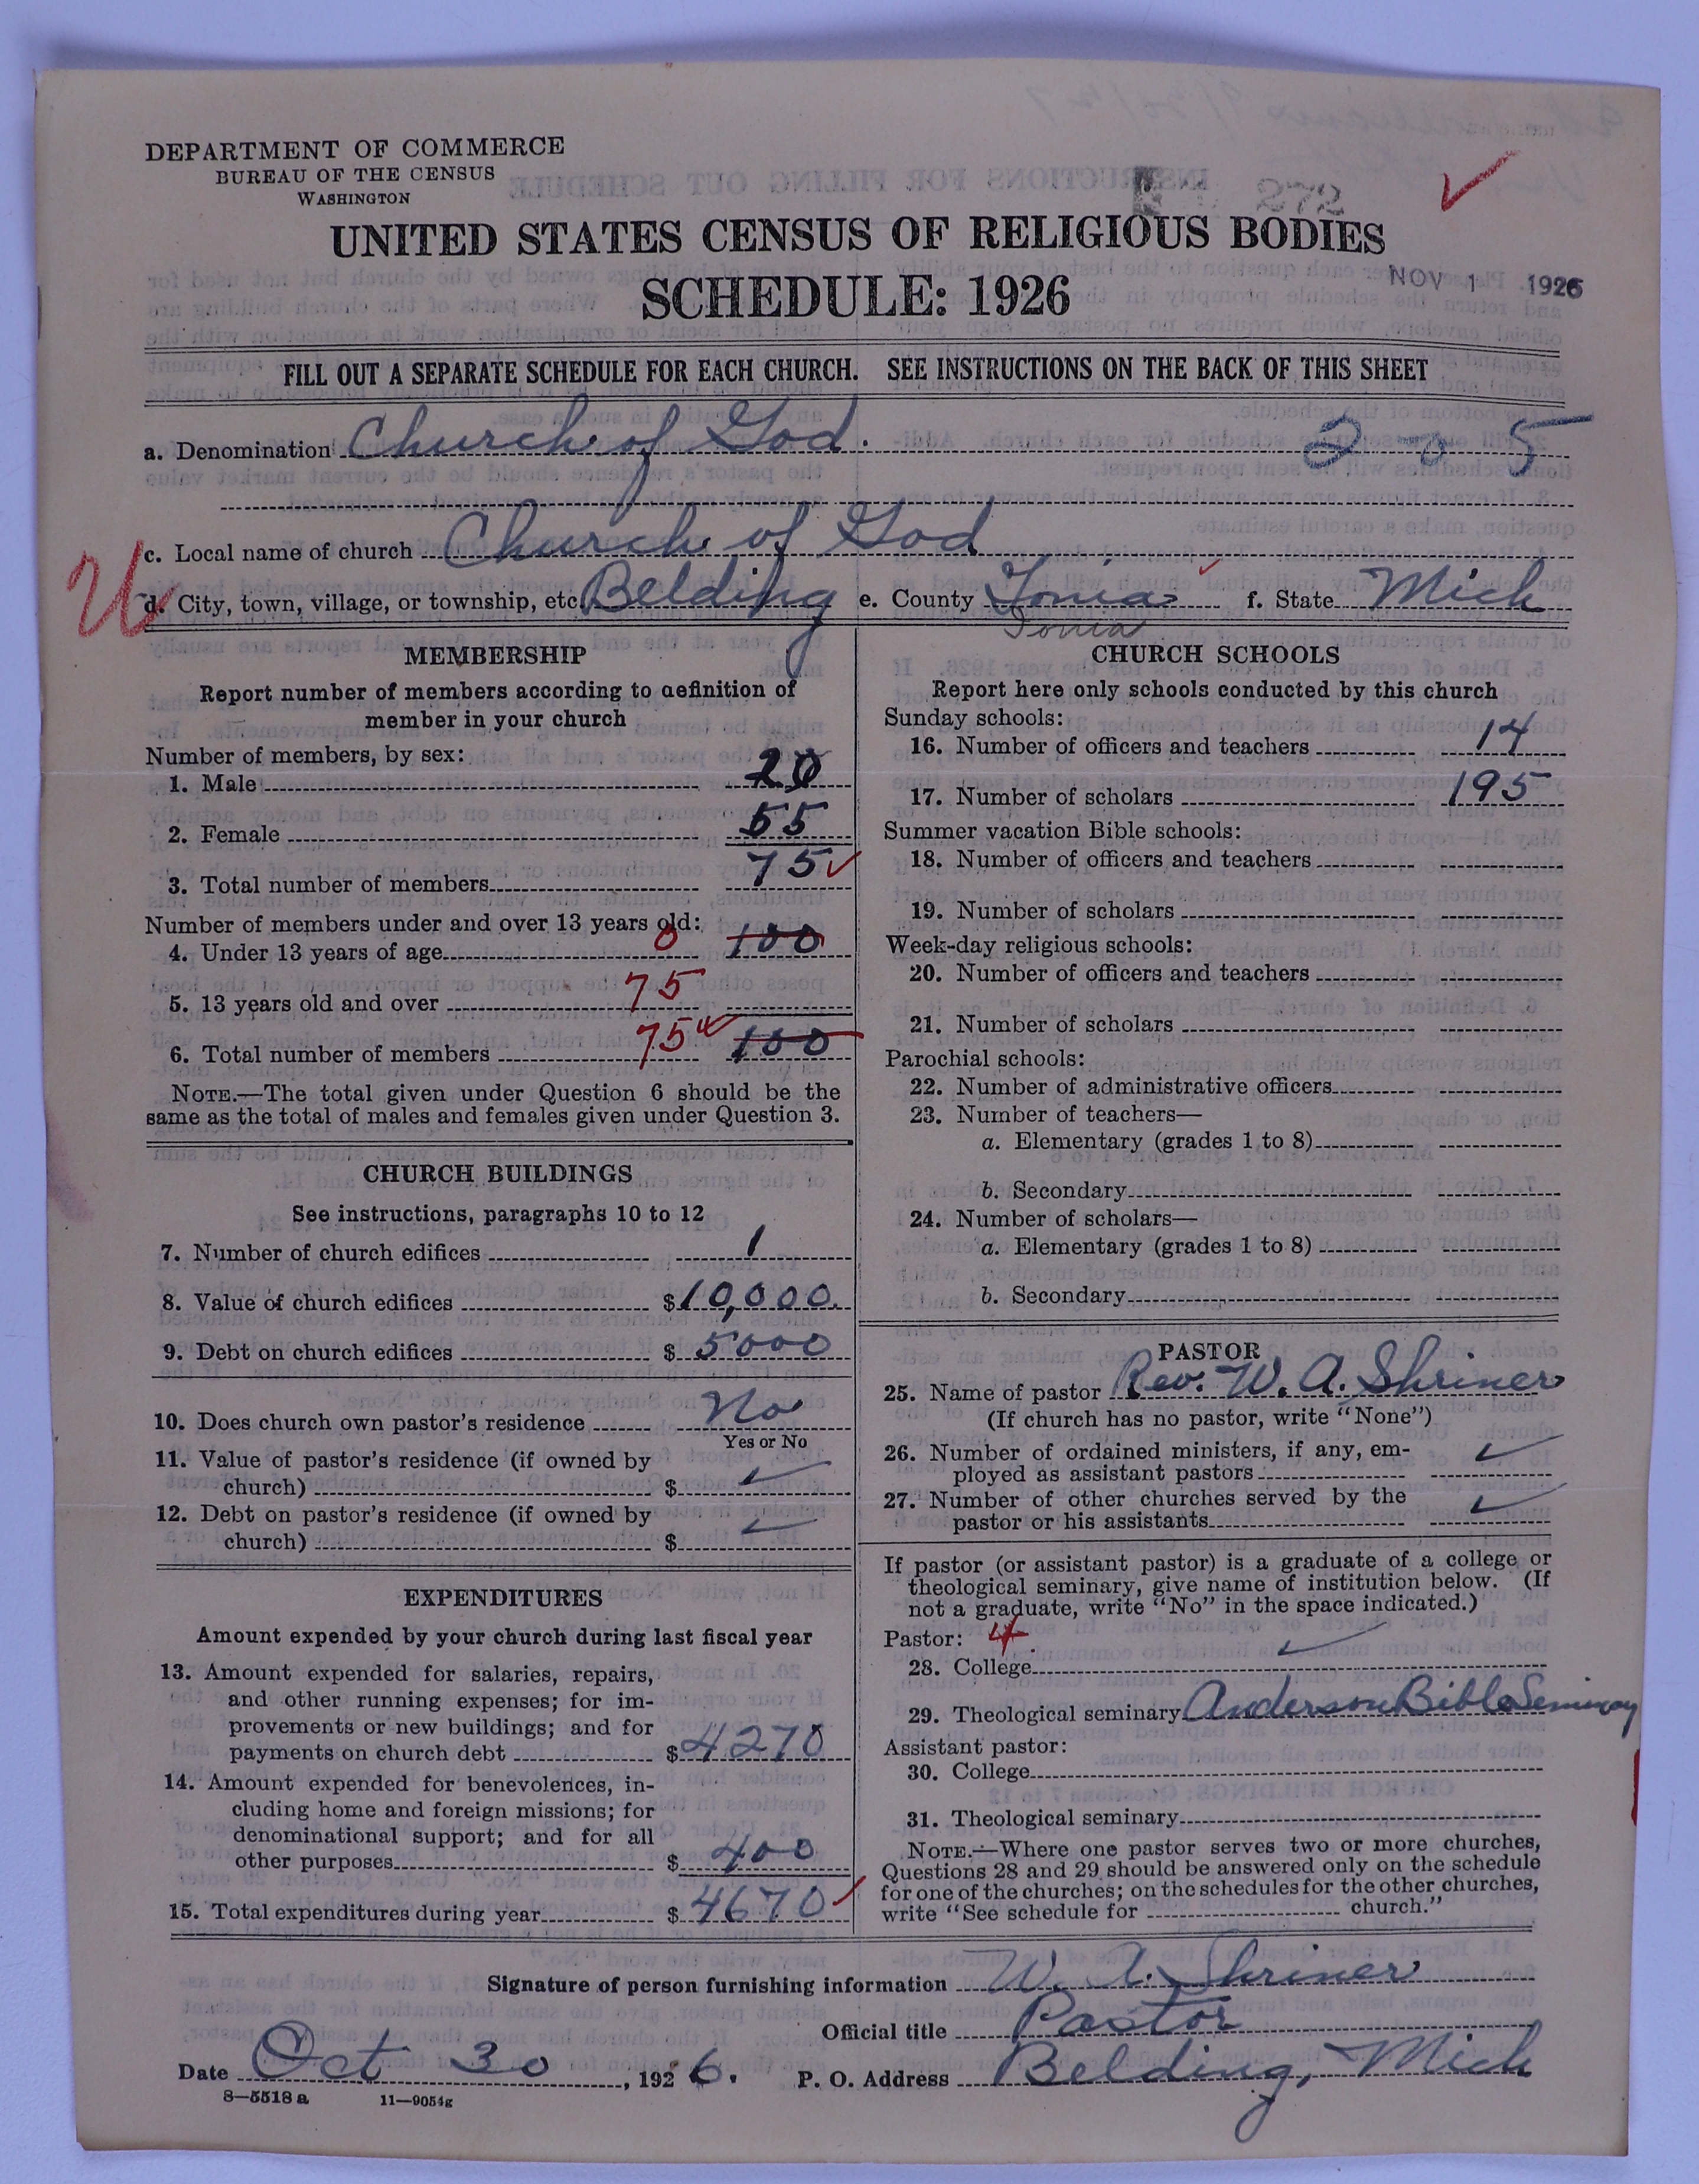 DEPARTMENT OF COMMERCE
BUREAU OF THE CENSUS
WASHINGTON
272
UNITED STATES CENSUS OF RELIGIOUS BODIES
SCHEDULE: 1926
NOV 1 1926
FILL OUT A SEPARATE SCHEDULE FOR EACH CHURCH. SEE INSTRUCTIONS ON THE BACK OF THIS SHEET
a. Denomination Church of God. 2-0-5
c. Local name of church Church of God
U
d. City, town, village, or township, etc. Belding e. County Ionia f. State Mich
Ionia
MEMBERSHIP
Report number of members according to definition of
member in your church
Number of members, by sex:
1. Male 20
2. Female 55
3. Total number of members 75
Number of members under and over 13 years old:
4. Under 13 years of age 0 100
5. 13 years old and over 75
6. Total number of members 75 100
NOTE.—The total given under Question 6 should be the
same as the total of males and females given under Question 3.
CHURCH BUILDINGS
See instructions, paragraphs 10 to 12
7. Number of church edifices 1
8. Value of church edifices $10,000.
9. Debt on church edifices $ 5000
10. Does church own pastor's residence No
Yes or No
11. Value of pastor's residence (if owned by
church) $ ✓
12. Debt on pastor's residence (if owned by
church) $ ✓
EXPENDITURES
Amount expended by your church during last fiscal year
13. Amount expended for salaries, repairs,
and other running expenses; for im-
provements or new buildings; and for
payments on church debt $4270
14. Amount expended for benevolences, in-
cluding home and foreign missions; for
denominational support; and for all
other purposes $ 400
15. Total expenditures during year $ 4670
CHURCH SCHOOLS
Report here only schools conducted by this church
Sunday schools:
16. Number of officers and teachers 14
17. Number of scholars 195
Summer vacation Bible schools:
18. Number of officers and teachers
19. Number of scholars
Week-day religious schools:
20. Number of officers and teachers
21. Number of scholars
Parochial schools:
22. Number of administrative officers
23. Number of teachers—
a. Elementary (grades 1 to 8)
b. Secondary
24. Number of scholars—
a. Elementary (grades 1 to 8)
b. Secondary
PASTOR
25. Name of pastor Rev. W. A. Shriner
(If church has no pastor, write "None")
26. Number of ordained ministers, if any, em-
ployed as assistant pastors ✓
27. Number of other churches served by the
pastor or his assistants ✓
If pastor (or assistant pastor) is a graduate of a college or
theological seminary, give name of institution below. (If
not a graduate, write "No" in the space indicated.)
Pastor: 4
28. College ✓
29. Theological seminary Anderson Bible Seminary
Assistant pastor:
30. College
31. Theological seminary
NOTE.—Where one pastor serves two or more churches,
Questions 28 and 29 should be answered only on the schedule
for one of the churches; on the schedules for the other churches,
write "See schedule for church."
Signature of person furnishing information W. A. Shriner
Official title Pastor
Date Oct 30, 1926. P. O. Address Belding, Mich
8—5518 a 11—9054g